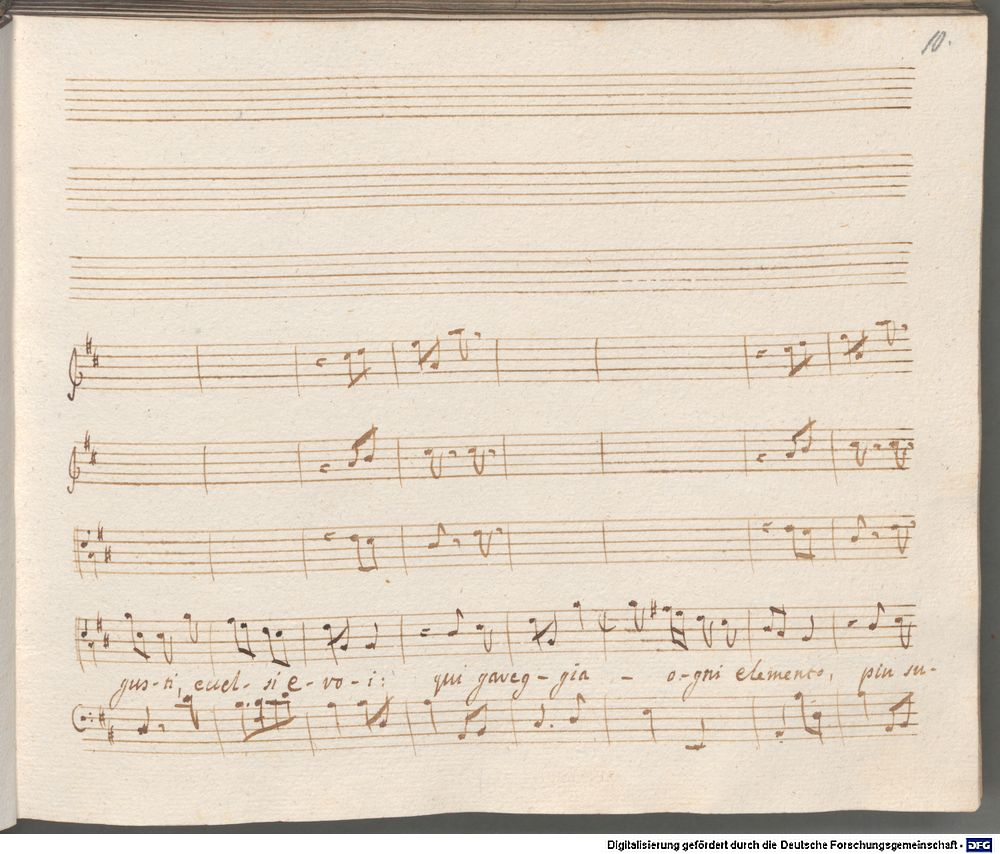 10.
gus-ti, eccel-si e-vo-i: qui gaveg-gia - o-gni elemento, piu su-
Digitalisierung gefördert durch die Deutsche Forschungsgemeinschaft - DFG